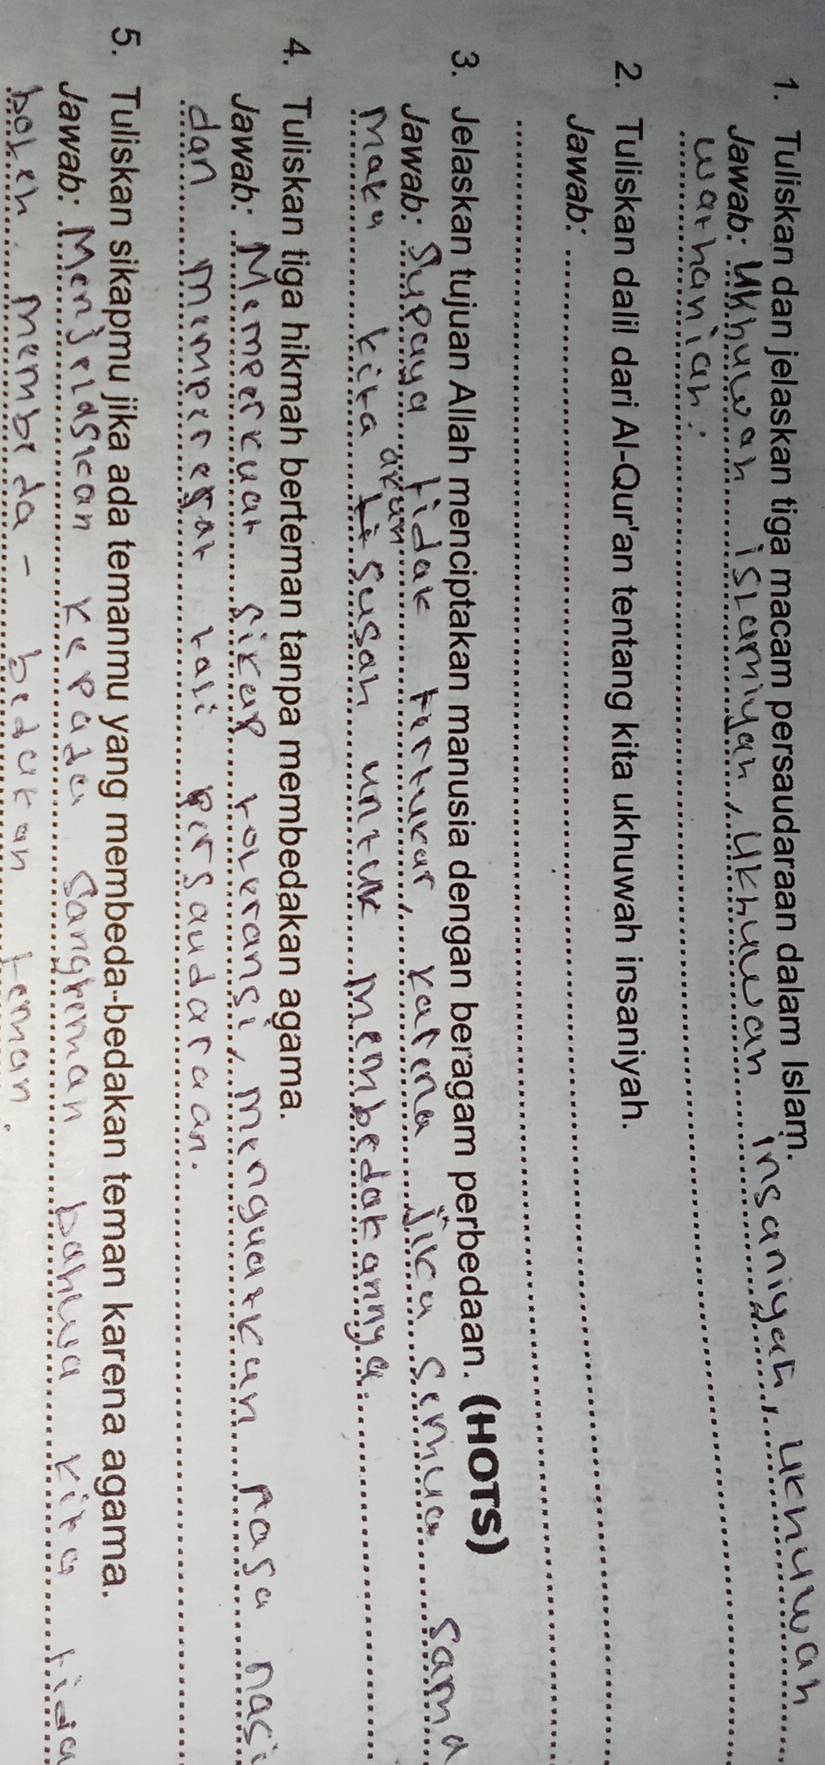 1. Tuliskan dan jelaskan tiga macam persaudaraan dalam Islam.
Jawab: Ukhuwah islamiyah, ukhuwah insaniyah, ukhuwah
wathaniah.
2. Tuliskan dalil dari Al-Qur'an tentang kita ukhuwah insaniyah.
Jawab:
3. Jelaskan tujuan Allah menciptakan manusia dengan beragam perbedaan. (HOTS)
Jawab: Supaya tidak tertukar, karena jika semua sama
maka kita akan susah untuk membedakannya.
4. Tuliskan tiga hikmah berteman tanpa membedakan agama.
Jawab: Memperkuat sikap toleransi, menguatkan rasa nasi
dan mempererat tali persaudaraan.
5. Tuliskan sikapmu jika ada temanmu yang membeda-bedakan teman karena agama.
Jawab: Menjelaskan kepada sangteman bahwa kita tida
boleh membeda-bedakan teman.